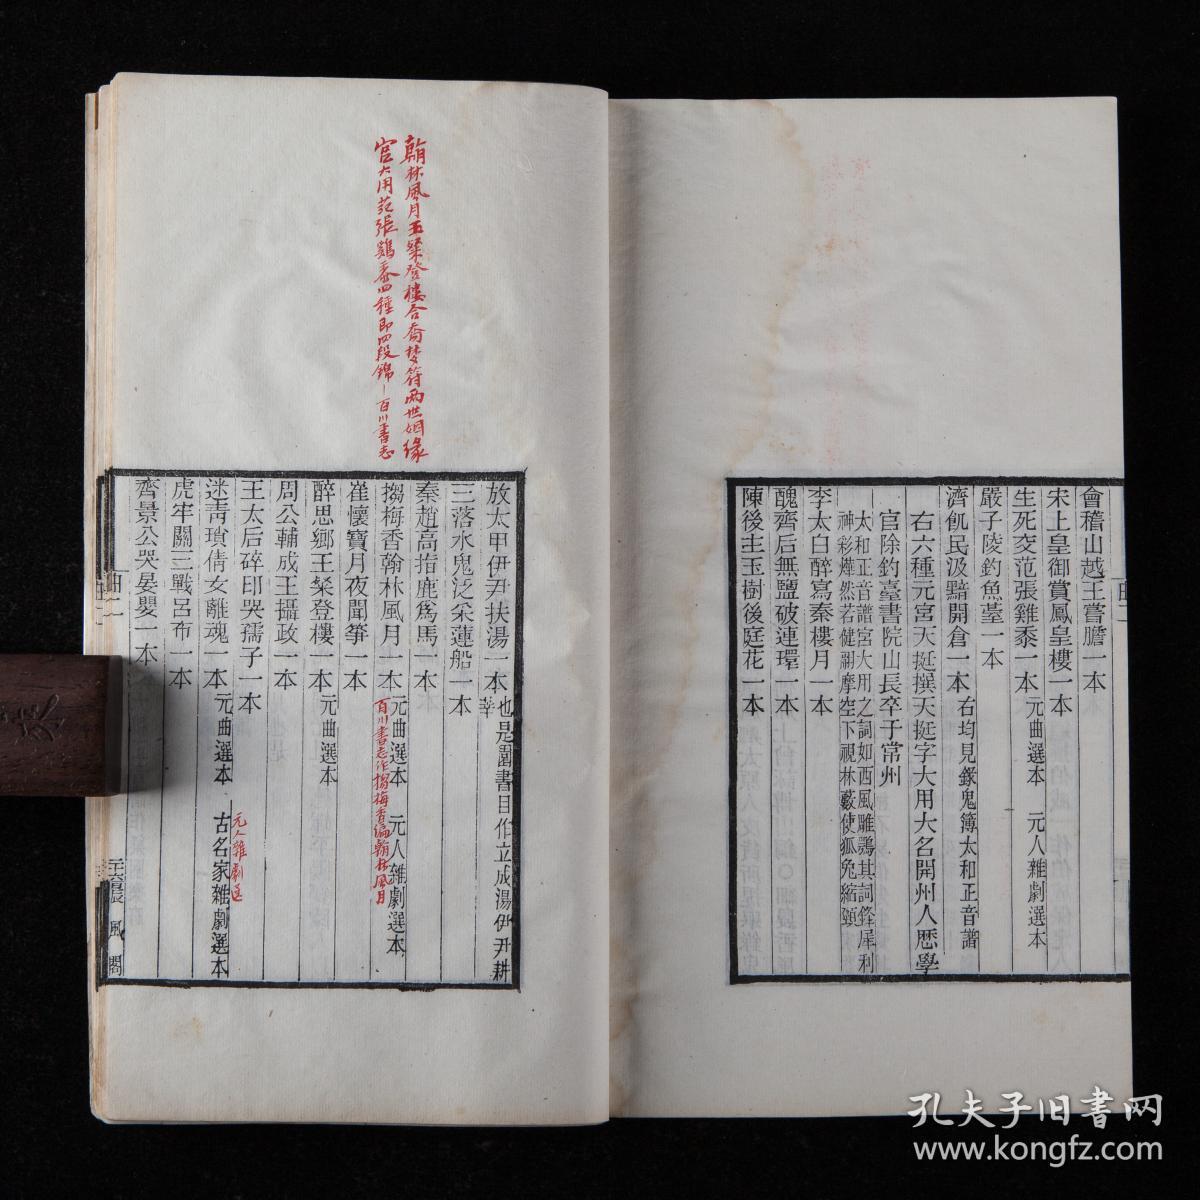 會稽山越王嘗膽一本
宋上皇御賞鳳皇樓一本
生死交范張雞黍一本 元曲選本 元人雜劇選本
嚴子陵釣魚臺一本
濟飢民汲黯開倉一本 右均見錄鬼簿太和正音譜
右六種元宮天挺撰天挺字大用大名開州人歷學
官除釣臺書院山長卒于常州
太和正音譜宮大用之詞如西風雕鶚其詞鋒犀利
神彩燁然若健翮摩空下視林藪使狐兔縮頸
李太白醉寫秦樓月一本
醜齊后無鹽破連環一本
陳後主玉樹後庭花一本
翰林風月王粲登樓合喬夢符兩世姻緣
宮大用范張鷄黍四種即四段錦—百川書志
放太甲伊尹扶湯一本 也是園書目作立成湯伊尹耕
莘
三落水鬼泛采蓮船一本
秦趙高指鹿爲馬一本
㑳梅香翰林風月一本 元曲選本 元人雜劇選本
百川書志作㑳梅香編翰林風月
崔懷寶月夜聞箏一本
醉思鄉王粲登樓一本 元曲選本
周公輔成王攝政一本
王太后碎印哭孺子一本
元人雜劇選
迷青瑣倩女離魂一本 元曲選本 古名家雜劇選本
虎牢關三戰呂布一本
齊景公哭晏嬰一本
曲二
晨風閣
孔夫子旧書网
www.kongfz.com